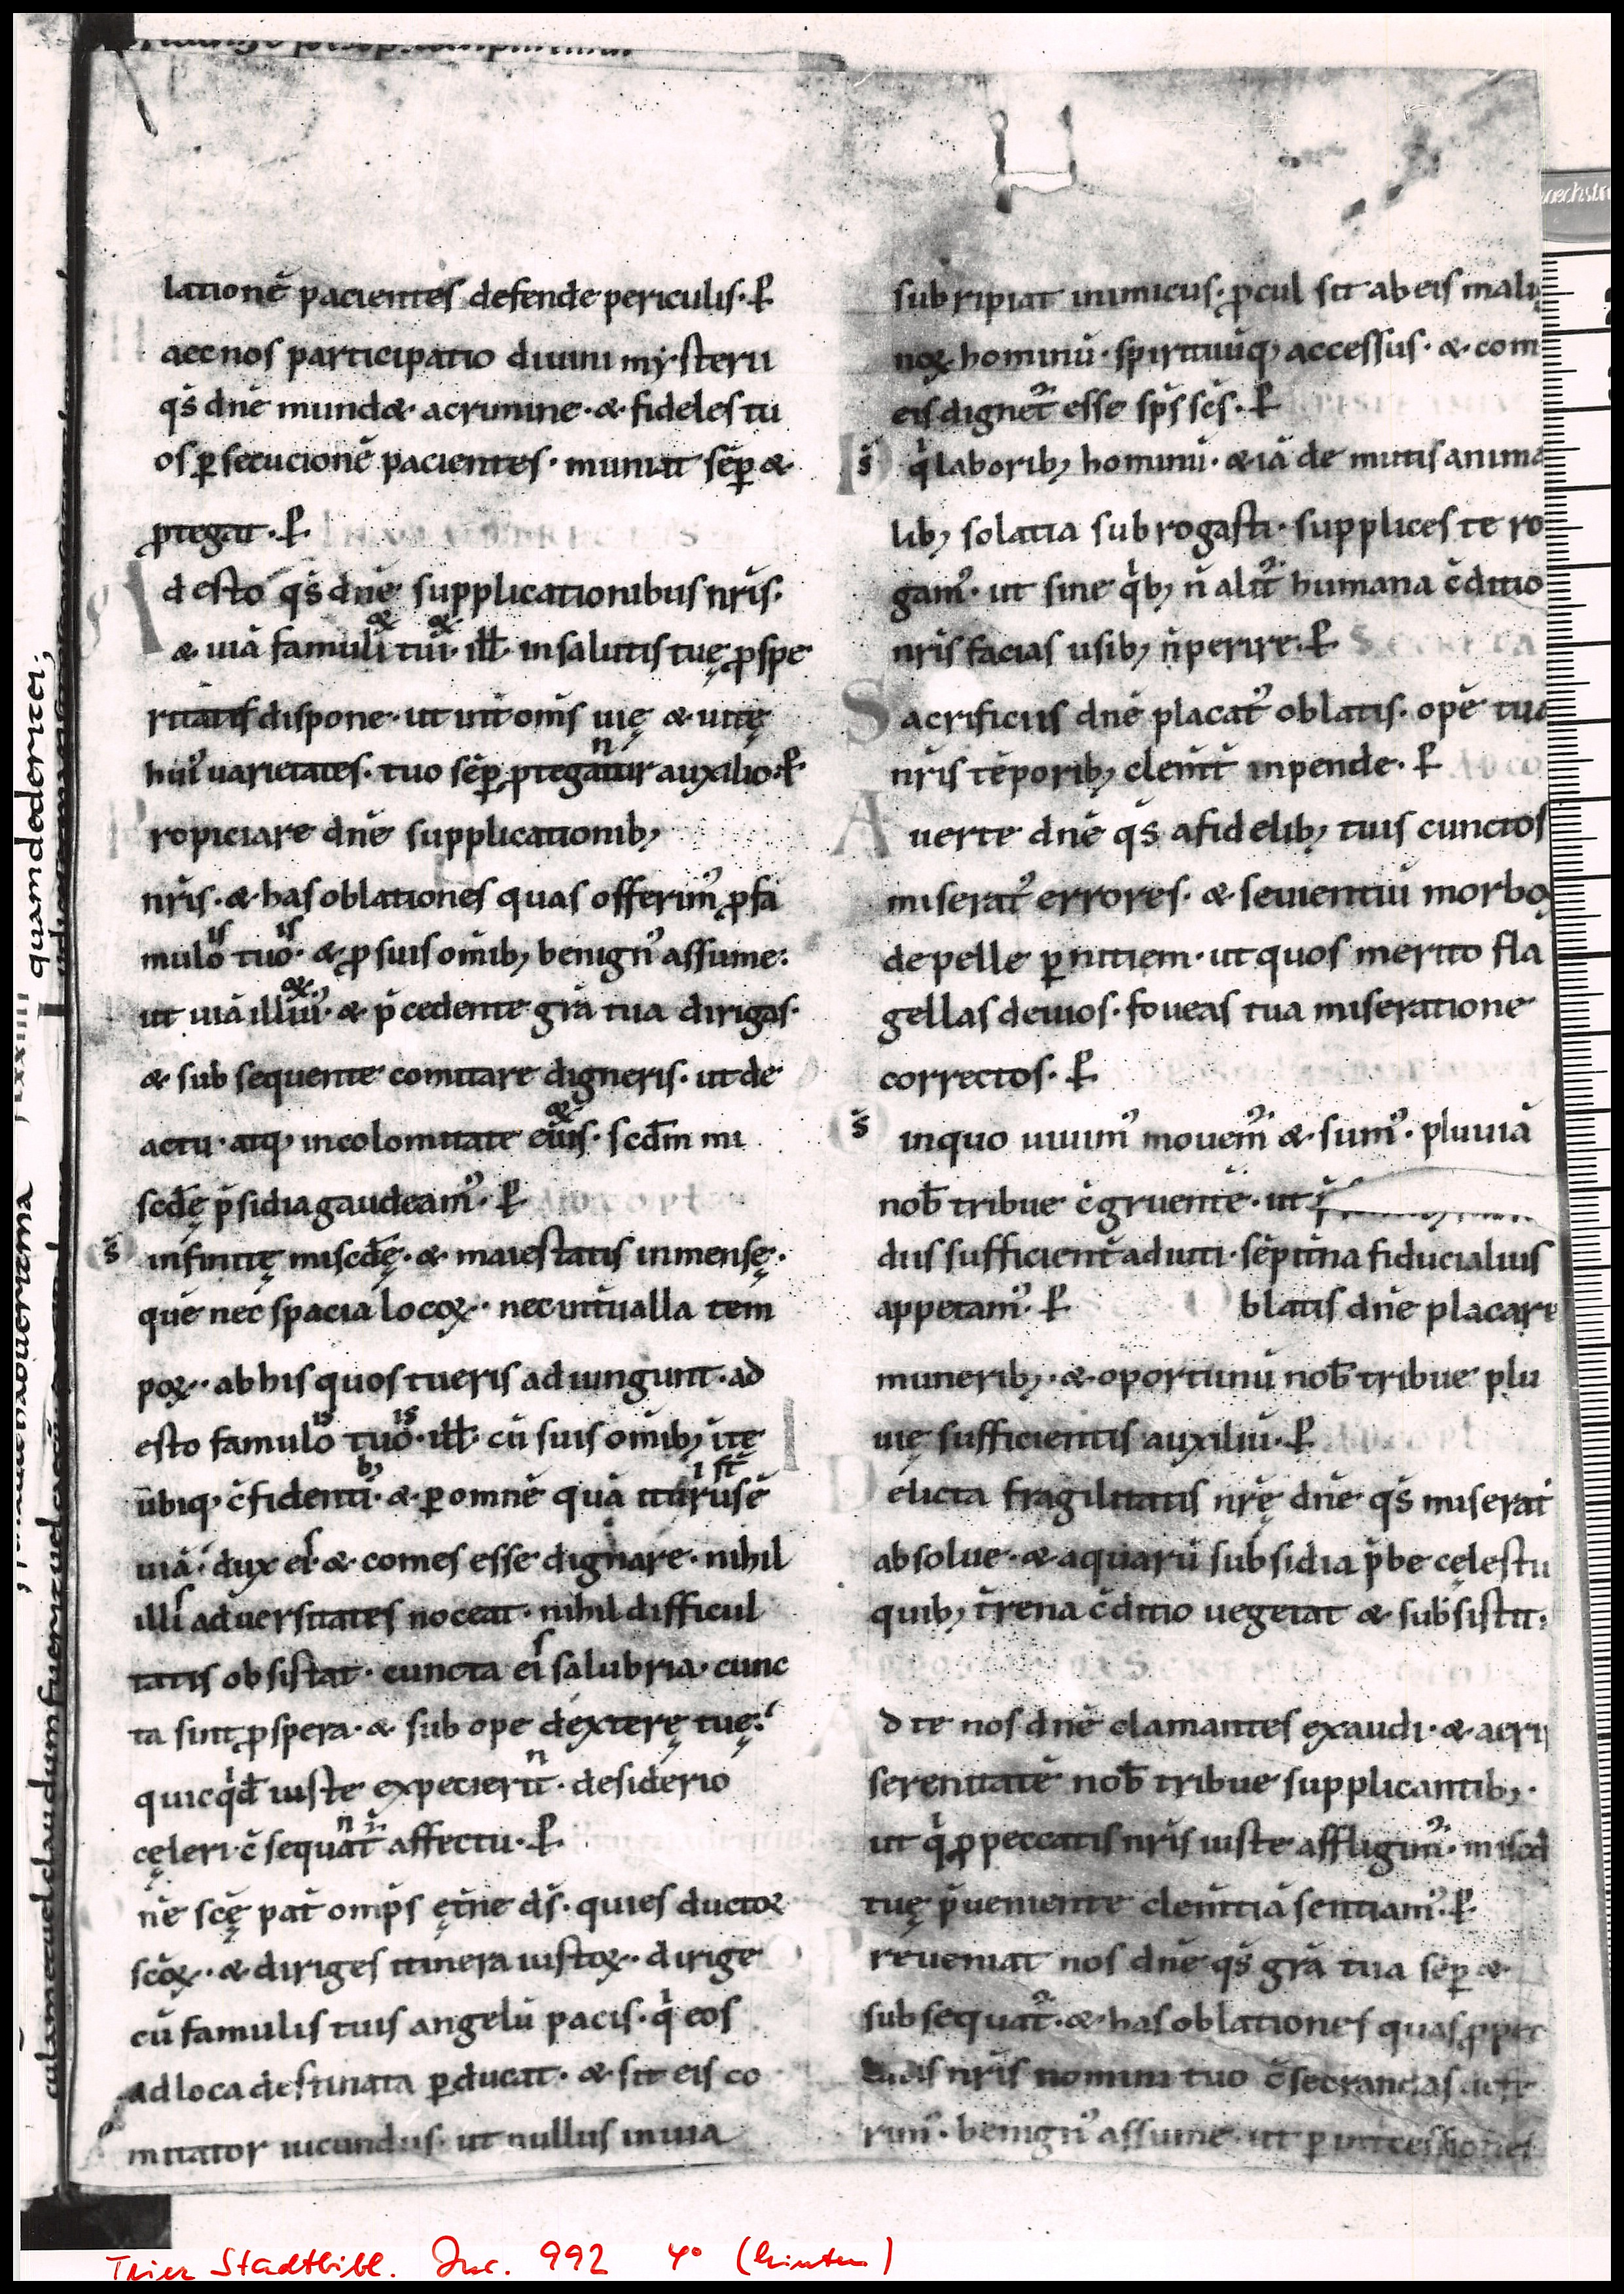 lationē pacientes defende periculis· P̵
aec nos participatio diuini mẏsterii
q̄s dn̄e mundet· a crimine· & fideles tu
os ꝑsecucionē pacientes· muniat sēp &
ꝓtegat· P̵
Adesto q̄s dn̄e supplicationibus nr̄is·
& uiā famuli tui· ill̄· in salutis tuę ꝓspe
ritatis dispone· ut int̄ om̄s uię & uitę
hui᷒ uarietates· tuo sēp ꝓtegatur auxilio· P̵
Propiciare dn̄e supplicationib;
nr̄is· & has oblationes quas offerim᷒ ꝓ fa
mulo tuo· & ꝓ suis om̄ib; benign᷒ assume:
ut uiā illiu᷒· & p̄cedente gr̄a tua dirigas·
& subsequente comitare digneris· ut de
actu· atq; incolomitate eius· scd̄m mi
scd̄ę p̄sidia gaudeam᷒· P̵
D̄s infinitę miscd̄ę· & maiestatis inmensę·
quē nec spacia locoꝝ· nec int̄ualla tem
poꝝ· ab his quos tueris adiungunt· ad
esto famulo tuo· ill̄· cū suis om̄ib; it̄ę
ubiq; c̄fidenti· & ꝑ omnē quā iturus ē
uiā· dux ei· & comes esse dignare· nihil
illi aduersitates noceat· nihil difficul
tatis obsistat· cuncta ei salubria· cunc
ta sint ꝓspera· & sub ope dexterę tuę·
quicqͥd iuste expecierit· desiderio
cęleri c̄sequat̄ affectu· P̵
n̄e scę pat̄ omp̄s ęt̄ne d̄s· qui es ductoꝛ
sc̄oꝝ· & diriges itinera iustoꝝ· dirige
cū famulis tuis angelū pacis· qͥ eos
ad loca destinata ꝑducat· & sit eis co
mitator iucundus· ut nullus in uia
subripiat inimicus· ꝓcul sit ab eis mali
noꝝ hominū· spirituūq; accessus· & com
eis dignet᷒ esse sp̄s sc̄s· P̵
D̄s qͥ laborib; hominū· & iā de mutis anima
lib; solatia subrogasti· supplices te ro
gam᷒· ut sine qͥb; n̄ alit᷒ humana c̄ditio
nr̄is facias usib; n̄ perire· P̵ SECRETA
Sacrificiis dn̄e placat᷒ oblatis· opē tuā
nr̄is tēporib; clem̄t inpende· P̵ AD CO
Auerte dn̄e q̄s a fidelib; tuis cunctos
miserat᷒ errores· & seuientiū morbo
depelle ꝑnitiem· ut quos merito fla
gellas deuios· foueas tua miseratione
correctos· P̵
D̄s in quo uiuim᷒ mouem᷒ & sum᷒· pluuiā
nob̄ tribue c̄gruente· ut
diis sufficient̄ adiuti· sēpit̄na fiducialius
appetam᷒· P̵ Oblatis dn̄e placare
munerib;· & oportunū nob̄ tribue plu
uię sufficientis auxiliū· P̵
Delicta fragilitatis nr̄ę dn̄e q̄s miserat᷒
absolue· & aquarū subsidia p̄be cęlestiū
quib; t̄rena c̄ditio uegetat & subsistit·
Ad te nos dn̄e clamantes exaudi· & aeri
serenitatē nob̄ tribue supplicantib;·
ut qͥ ꝓ peccatis nr̄is iuste affligim᷒· miscd̄
tuę p̄ueniente clem̄tiā sentiam᷒· P̵
Preueniat nos dn̄e q̄s gr̄a tua sēp &
subsequat᷒· & has oblationes quas ꝓ pec
catis nr̄is nomini tuo c̄secrandas defe
rim᷒· benign᷒ assume· ut ꝑ int̄cessionē
quam dederit ei,
Trier Stadtbibl. Inc. 992 4° (hinten)